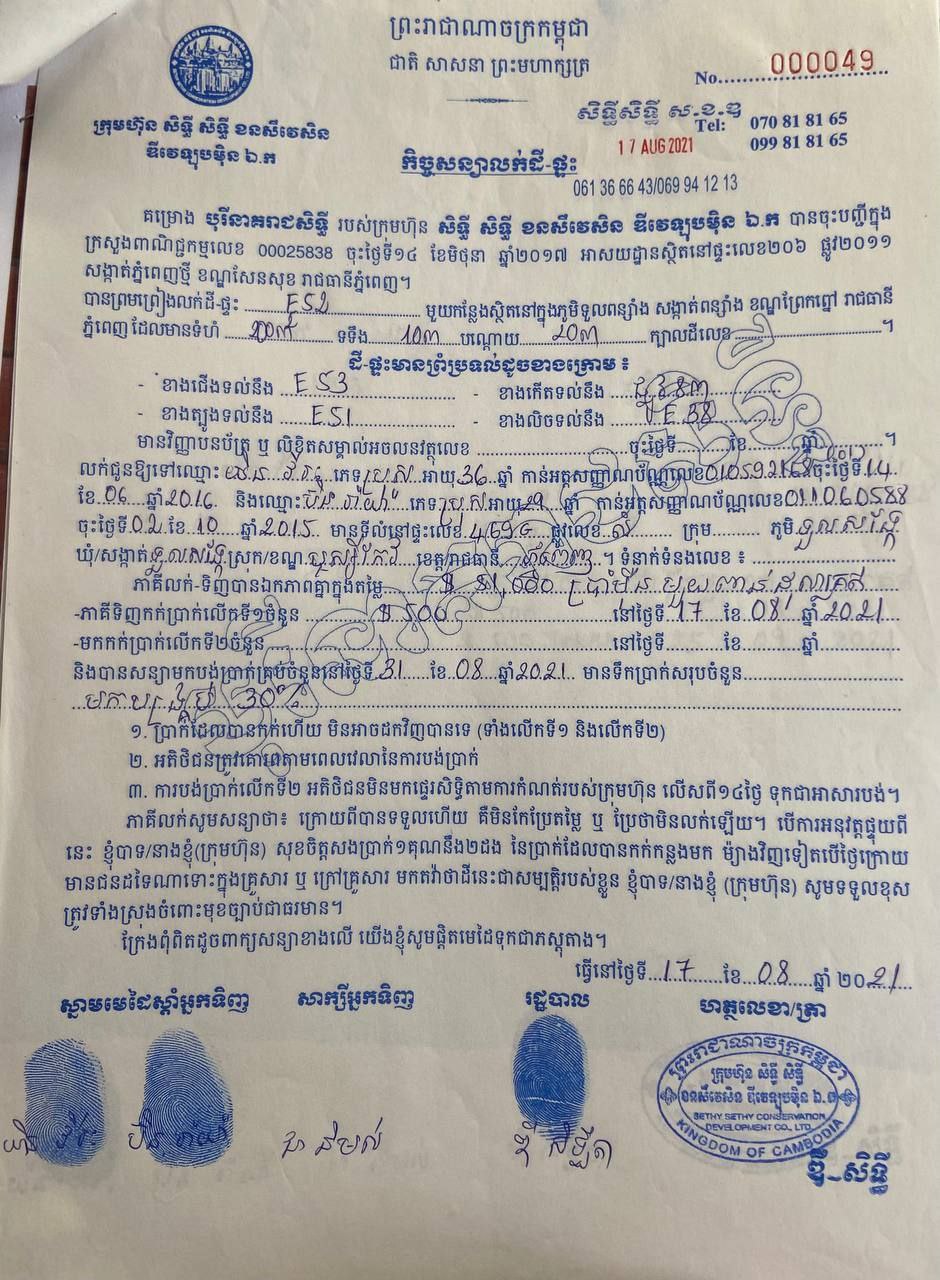 ព្រះរាជាណាចក្រកម្ពុជា
ជាតិ សាសនា ព្រះមហាក្សត្រ
No. 000049
ក្រុមហ៊ុន សិទ្ធី សិទ្ធី ខនសឺវេសិន
ឌីវេឡុបម៉ិន ឯ.ក
សិទ្ធីសិទ្ធី ស.ខ.ឌ
Tel: 070 81 81 65
099 81 81 65
17 AUG 2021
061 36 66 43/069 94 12 13
កិច្ចសន្យាលក់ដី-ផ្ទះ
គម្រោង បុរីនាគរាជសិទ្ធី របស់ក្រុមហ៊ុន សិទ្ធី សិទ្ធី ខនសឺវេសិន ឌីវេឡុបម៉ិន ឯ.ក បានចុះបញ្ជីក្នុង
ក្រសួងពាណិជ្ជកម្មលេខ 00025838 ចុះថ្ងៃទី១៤ ខែមិថុនា ឆ្នាំ២០១៧ អាសយដ្ឋានស្ថិតនៅផ្ទះលេខ២០៦ ផ្លូវ២០១១
សង្កាត់ភ្នំពេញថ្មី ខណ្ឌសែនសុខ រាជធានីភ្នំពេញ។
បានព្រមព្រៀងលក់ដី-ផ្ទះ ES2 មួយកន្លែងស្ថិតនៅក្នុងភូមិទួលពន្សាំង សង្កាត់ពន្សាំង ខណ្ឌព្រែកព្នៅ រាជធានី
ភ្នំពេញ ដែលមានទំហំ ទទឹង 10m បណ្តោយ 20m ក្បាលដីលេខ ។
ដី-ផ្ទះមានព្រំប្រទល់ដូចខាងក្រោម ៖
- ខាងជើងទល់នឹង ES3 - ខាងកើតទល់នឹង
- ខាងត្បូងទល់នឹង ES1 - ខាងលិចទល់នឹង
មានវិញ្ញាបនប័ត្រ ឬ លិខិតសម្គាល់អចលនវត្ថុលេខ ចុះថ្ងៃទី ខែ ឆ្នាំ ។
លក់ជូនឱ្យទៅឈ្មោះ ភេទ ប្រុស អាយុ 36 ឆ្នាំ កាន់អត្តសញ្ញាណប័ណ្ណលេខ ចុះថ្ងៃទី 14
ខែ 06 ឆ្នាំ 2016 និងឈ្មោះ ភេទ អាយុ 29 ឆ្នាំ កាន់អត្តសញ្ញាណប័ណ្ណលេខ 011060588
ចុះថ្ងៃទី 02 ខែ 10 ឆ្នាំ 2015 មានទីលំនៅផ្ទះលេខ ផ្លូវលេខ ក្រុម ភូមិ ទួលសង្កែ
ឃុំ/សង្កាត់ ទួលសង្កែ ស្រុក/ខណ្ឌ ឫស្សីកែវ ខេត្ត/រាជធានី ភ្នំពេញ ។ ទំនាក់ទំនងលេខ ៖
ភាគីលក់-ទិញបានឯកភាពគ្នាក្នុងតម្លៃ $ 51,000 ប្រាំម៉ឺនមួយពាន់ដុល្លារគត់
-ភាគីទិញកក់ប្រាក់លើកទី១ចំនួន $ 500 នៅថ្ងៃទី 17 ខែ 08 ឆ្នាំ 2021
-មកកក់ប្រាក់លើកទី២ចំនួន នៅថ្ងៃទី ខែ ឆ្នាំ
និងបានសន្យាមកបង់ប្រាក់គ្រប់ចំនួននៅថ្ងៃទី 31 ខែ 08 ឆ្នាំ 2021 មានទឹកប្រាក់សរុបចំនួន
មកបង្គ្រប់ 30%
១. ប្រាក់ដែលបានកក់ហើយ មិនអាចដកវិញបានទេ (ទាំងលើកទី១ និងលើកទី២)
២. អតិថិជនត្រូវគោរពតាមពេលវេលានៃការបង់ប្រាក់
៣. ការបង់ប្រាក់លើកទី២ អតិថិជនមិនមកផ្ទេរសិទ្ធិតាមការកំណត់របស់ក្រុមហ៊ុន លើសពី១៤ថ្ងៃ ទុកជាអាសារបង់។
ភាគីលក់សូមសន្យាថា៖ ក្រោយពីបានទទួលហើយ គឺមិនកែប្រែតម្លៃ ឬ ប្រែថាមិនលក់ឡើយ។ បើការអនុវត្តផ្ទុយពី
នេះ ខ្ញុំបាទ/នាងខ្ញុំ(ក្រុមហ៊ុន) សុខចិត្តសងប្រាក់១គុណនឹង២ដង នៃប្រាក់ដែលបានកក់កន្លងមក ម៉្យាងវិញទៀតបើថ្ងៃក្រោយ
មានជនដទៃណាទោះក្នុងគ្រួសារ ឬ ក្រៅគ្រួសារ មកតវ៉ាថាដីនេះជាសម្បត្តិរបស់ខ្លួន ខ្ញុំបាទ/នាងខ្ញុំ (ក្រុមហ៊ុន) សូមទទួលខុស
ត្រូវទាំងស្រុងចំពោះមុខច្បាប់ជាធរមាន។
ក្រែងពុំពិតដូចពាក្យសន្យាខាងលើ យើងខ្ញុំសូមផ្តិតមេដៃទុកជាភស្តុតាង។
ធ្វើនៅថ្ងៃទី 17 ខែ 08 ឆ្នាំ ២០21
ស្នាមមេដៃស្តាំអ្នកទិញ សាក្សីអ្នកទិញ រដ្ឋបាល ហត្ថលេខា/ត្រា
ព្រះរាជាណាចក្រកម្ពុជា
ក្រុមហ៊ុន សិទ្ធី សិទ្ធី
ខនសឺវេសិន ឌីវេឡុបម៉ិន ឯ.ក
SETHY SETHY CONSERVATION
DEVELOPMENT CO., LTD.
KINGDOM OF CAMBODIA
ឌី-សិទ្ធី